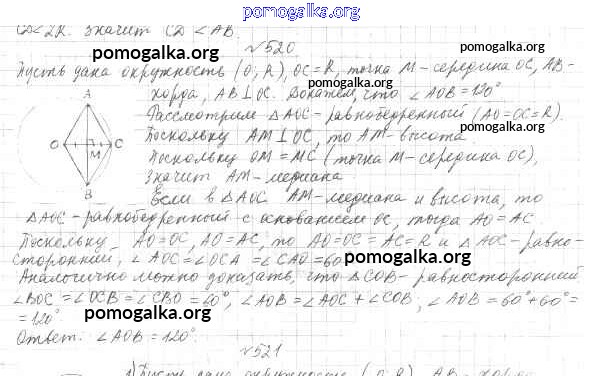 pomogalka.org
CD < 2R. значит CD < AB.
pomogalka.org
№520
pomogalka.org
Пусть дана окружность (O; R), OC = R, точка M - середина OC, AB -
хорда, AB ⊥ OC. Докажем, что ∠AOB = 120°
Рассмотрим △AOC - равнобедренный (AO = OC = R).
Поскольку AM ⊥ OC, то AM - высота.
pomogalka.org
Поскольку OM = MC (точка M - середина OC),
значит AM - медиана
Если в △AOC AM - медиана и высота, то
A
O
C
M
B
△AOC - равнобедренный с основанием OC, тогда AO = AC
pomogalka.org
Поскольку AO = OC, AO = AC, то AO = OC = AC = R и △AOC - равно-
сторонний, ∠AOC = ∠OCA = ∠CAO = 60°
pomogalka.org
Аналогично можно доказать, что △COB - равносторонний
∠BOC = ∠OCB = ∠CBO = 60°, ∠AOB = ∠AOC + ∠COB, ∠AOB = 60° + 60° =
= 120°
pomogalka.org
Ответ: ∠AOB = 120°.
pomogalka.org
№521
1) Пусть дана окружность (O; R), AB - хорда
pomogalka.org